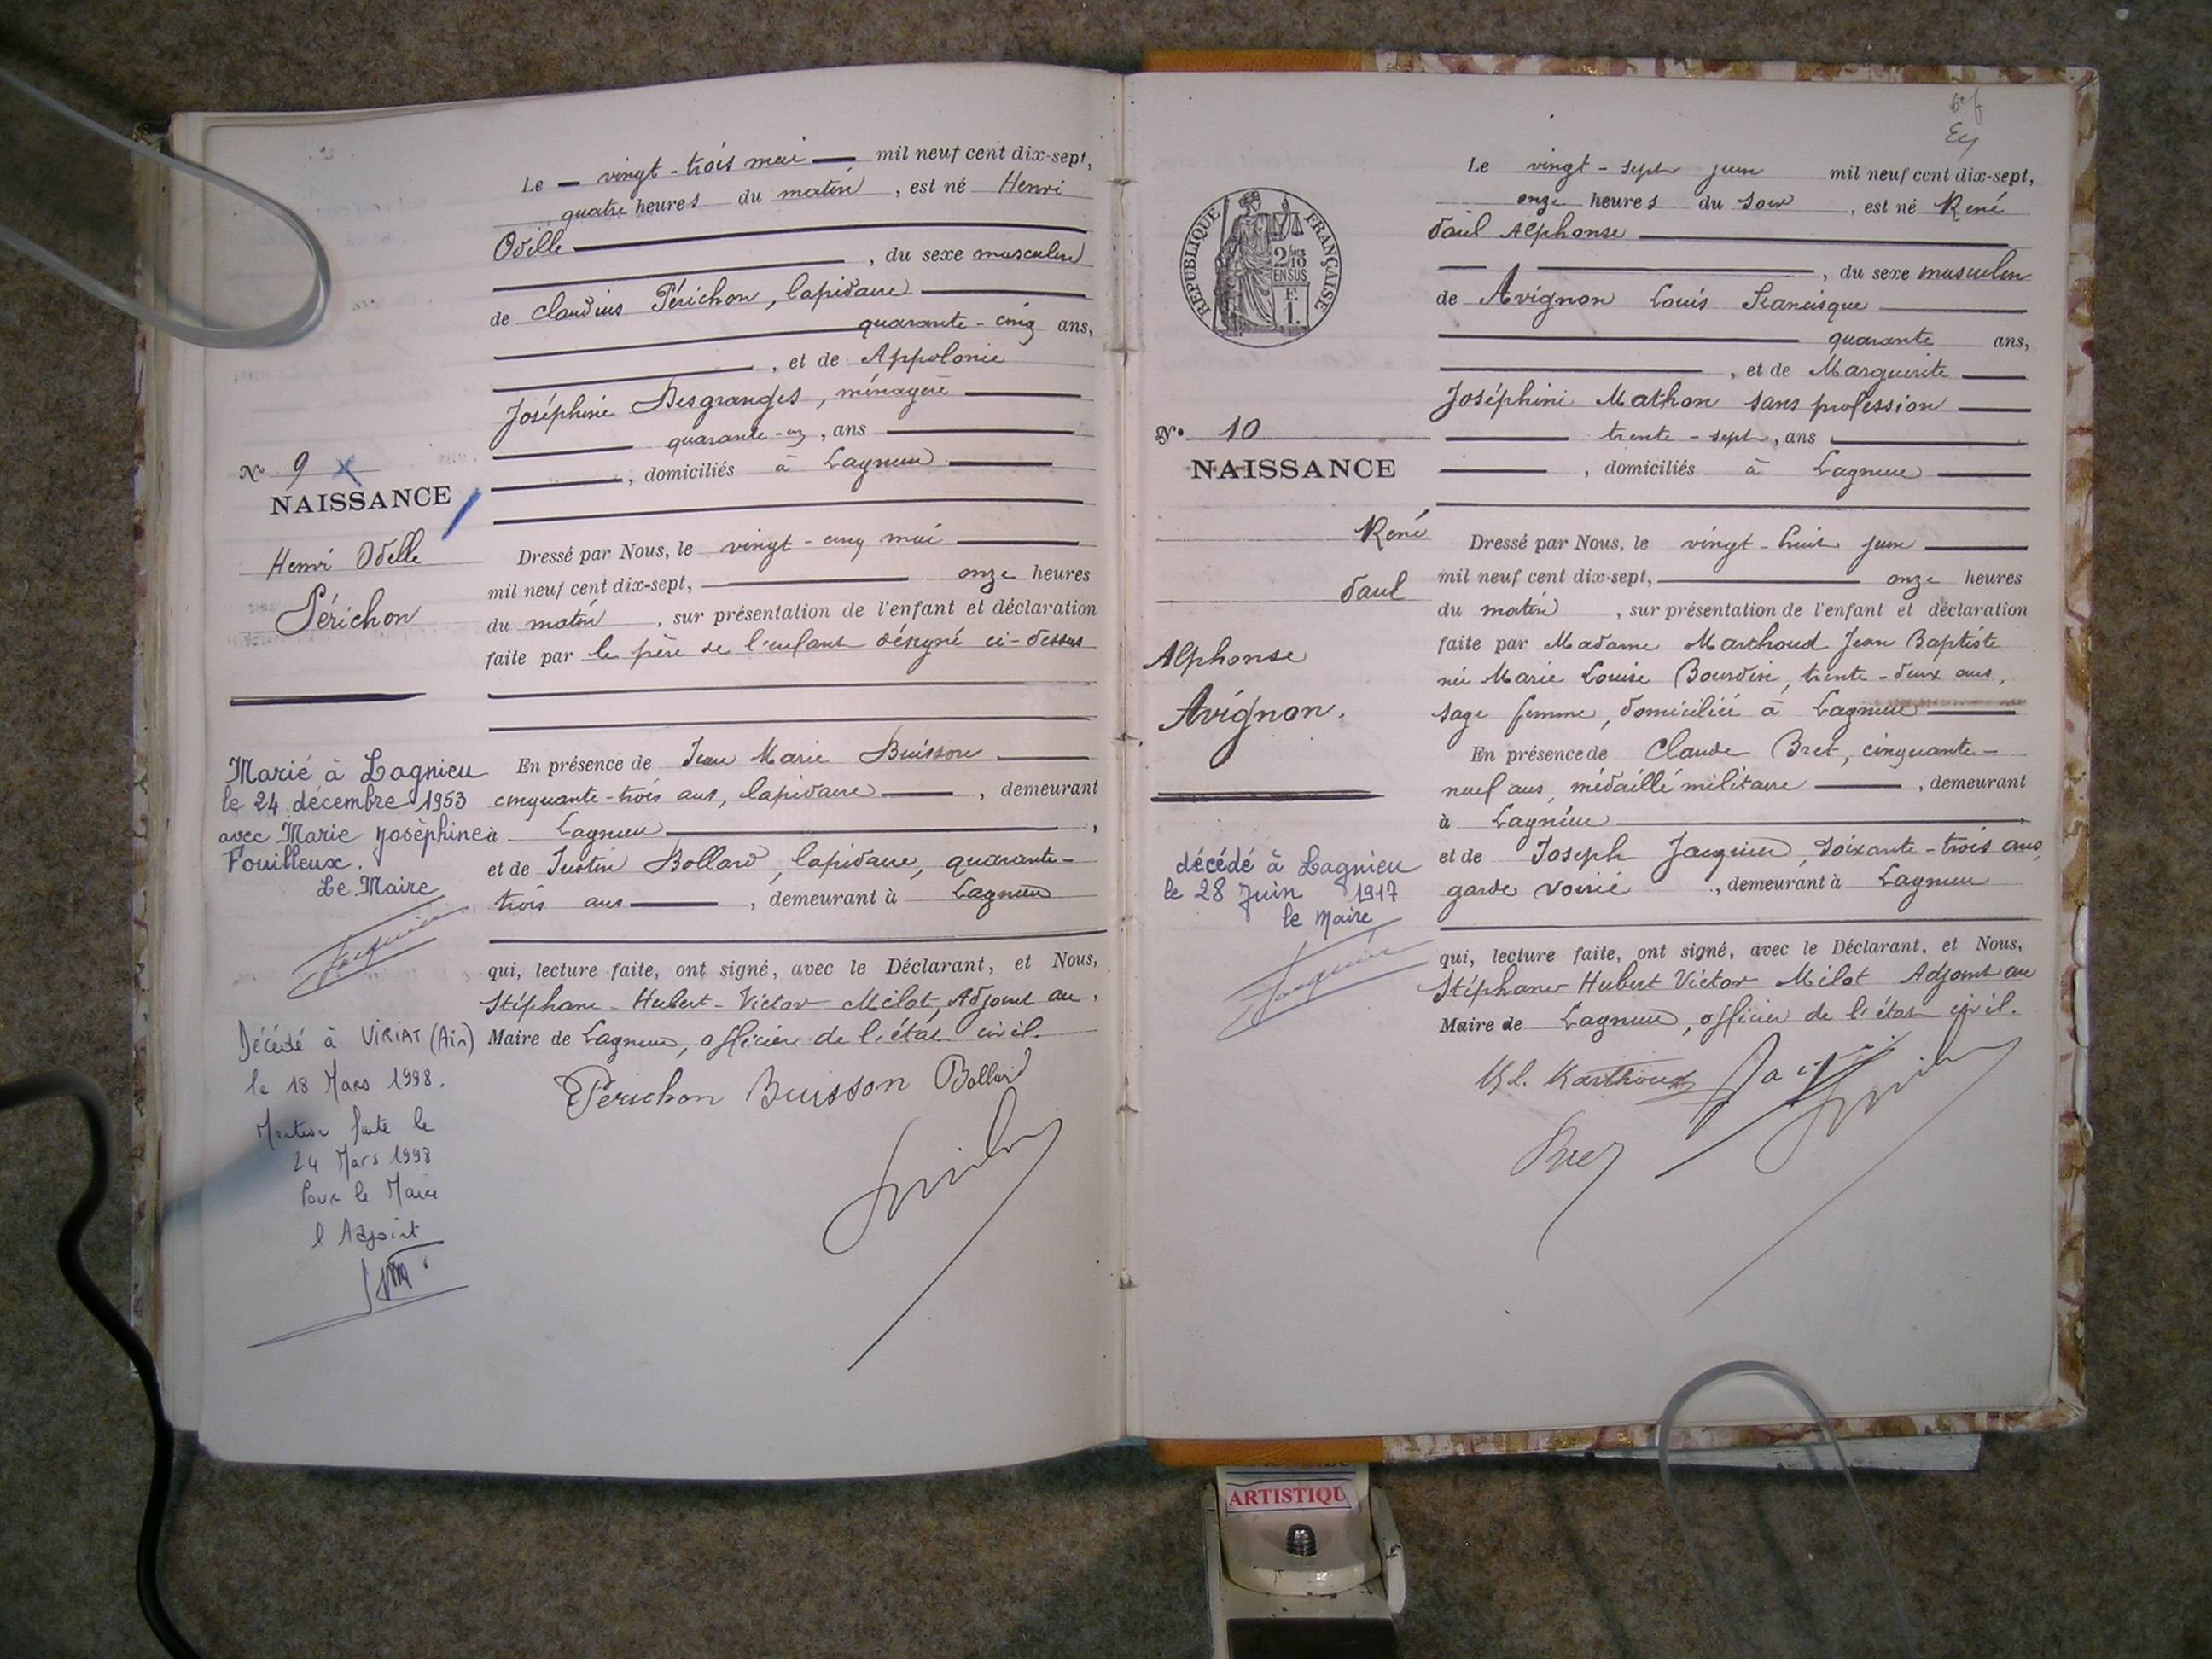 Le vingt-trois mai mil neuf cent dix-sept,
quatre heures du matin, est né Henri
Odille
, du sexe masculin
de Claudius Périchon, lapidaire
quarante-cinq ans,
, et de Appolonie
Joséphine Desgranges, ménagère
quarante-un, ans
, domiciliés à Lagnieu
No 9
NAISSANCE
Henri Odelle
Périchon
Dressé par Nous, le vingt-cinq mai
mil neuf cent dix-sept, onze heures
du matin, sur présentation de l'enfant et déclaration
faite par le père de l'enfant désigné ci-dessus
En présence de Jean Marie Buisson
cinquante-trois ans, lapidaire, demeurant
à Lagnieu,
et de Justin Bollard, lapidaire, quarante-
trois ans, demeurant à Lagnieu
qui, lecture faite, ont signé, avec le Déclarant, et Nous,
Stéphane-Hubert-Victor Milot, Adjoint au
Maire de Lagnieu, officier de l'état civil.
Périchon Buisson Bollard
Marié à Lagnieu
le 24 décembre 1953
avec Marie Josèphine
Fouilleux.
Le Maire
Jacquin
Décédé à VIRIAT (Ain)
le 18 Mars 1998.
Mention faite le
24 Mars 1998
Pour le Maire
l'Adjoint
RÉPUBLIQUE FRANÇAISE
2/10
EN SUS
F.
1.
Le vingt-sept juin mil neuf cent dix-sept,
onze heures du soir, est né René
Paul Alphonse
, du sexe masculin
de Avignon Louis Francisque
quarante ans,
, et de Marguerite
Joséphine Mathon sans profession
trente-sept, ans
, domiciliés à Lagnieu
No 10
NAISSANCE
René
Paul
Alphonse
Avignon.
Dressé par Nous, le vingt-huit juin
mil neuf cent dix-sept, onze heures
du matin, sur présentation de l'enfant et déclaration
faite par Madame Marthoud Jean Baptiste
née Marie Louise Bourdin, trente-deux ans,
sage femme, domiciliée à Lagnieu
En présence de Claude Bret, cinquante-
neuf ans, médaillé militaire, demeurant
à Lagnieu
et de Joseph Jacquin, soixante-trois ans,
garde voirie, demeurant à Lagnieu
qui, lecture faite, ont signé, avec le Déclarant, et Nous,
Stéphane Hubert Victor Milot Adjoint au
Maire de Lagnieu, officier de l'état civil.
M.L. Marthoud
Bret
décédé à Lagnieu
le 28 Juin 1917
le Maire
Jacquin
ARTISTIQU